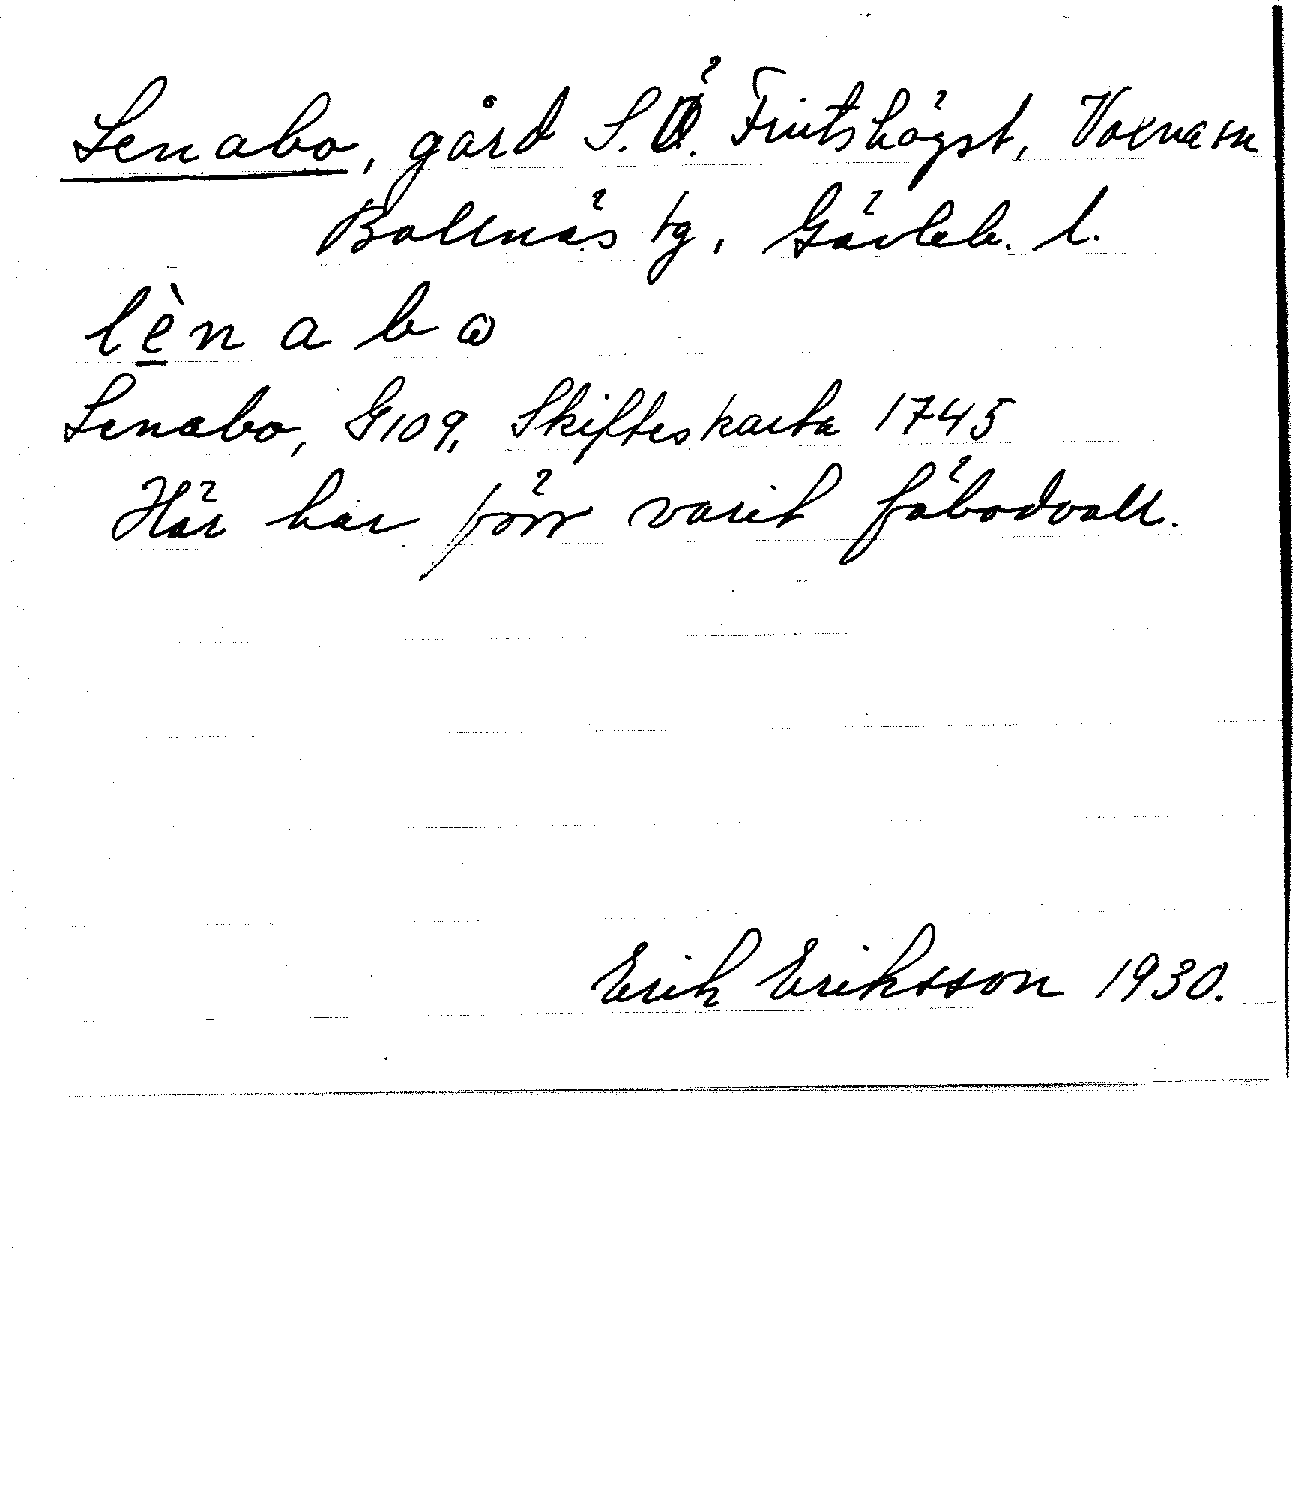 Lenabo, gård S.Ö. Fintshögst, Voxna sn
Bollnäs tg, Gävleb. l.
lènabω
Lenabo, G109, Skifteskarta 1745
Här har förr varit fäbodvall.
Erik Eriksson 1930.